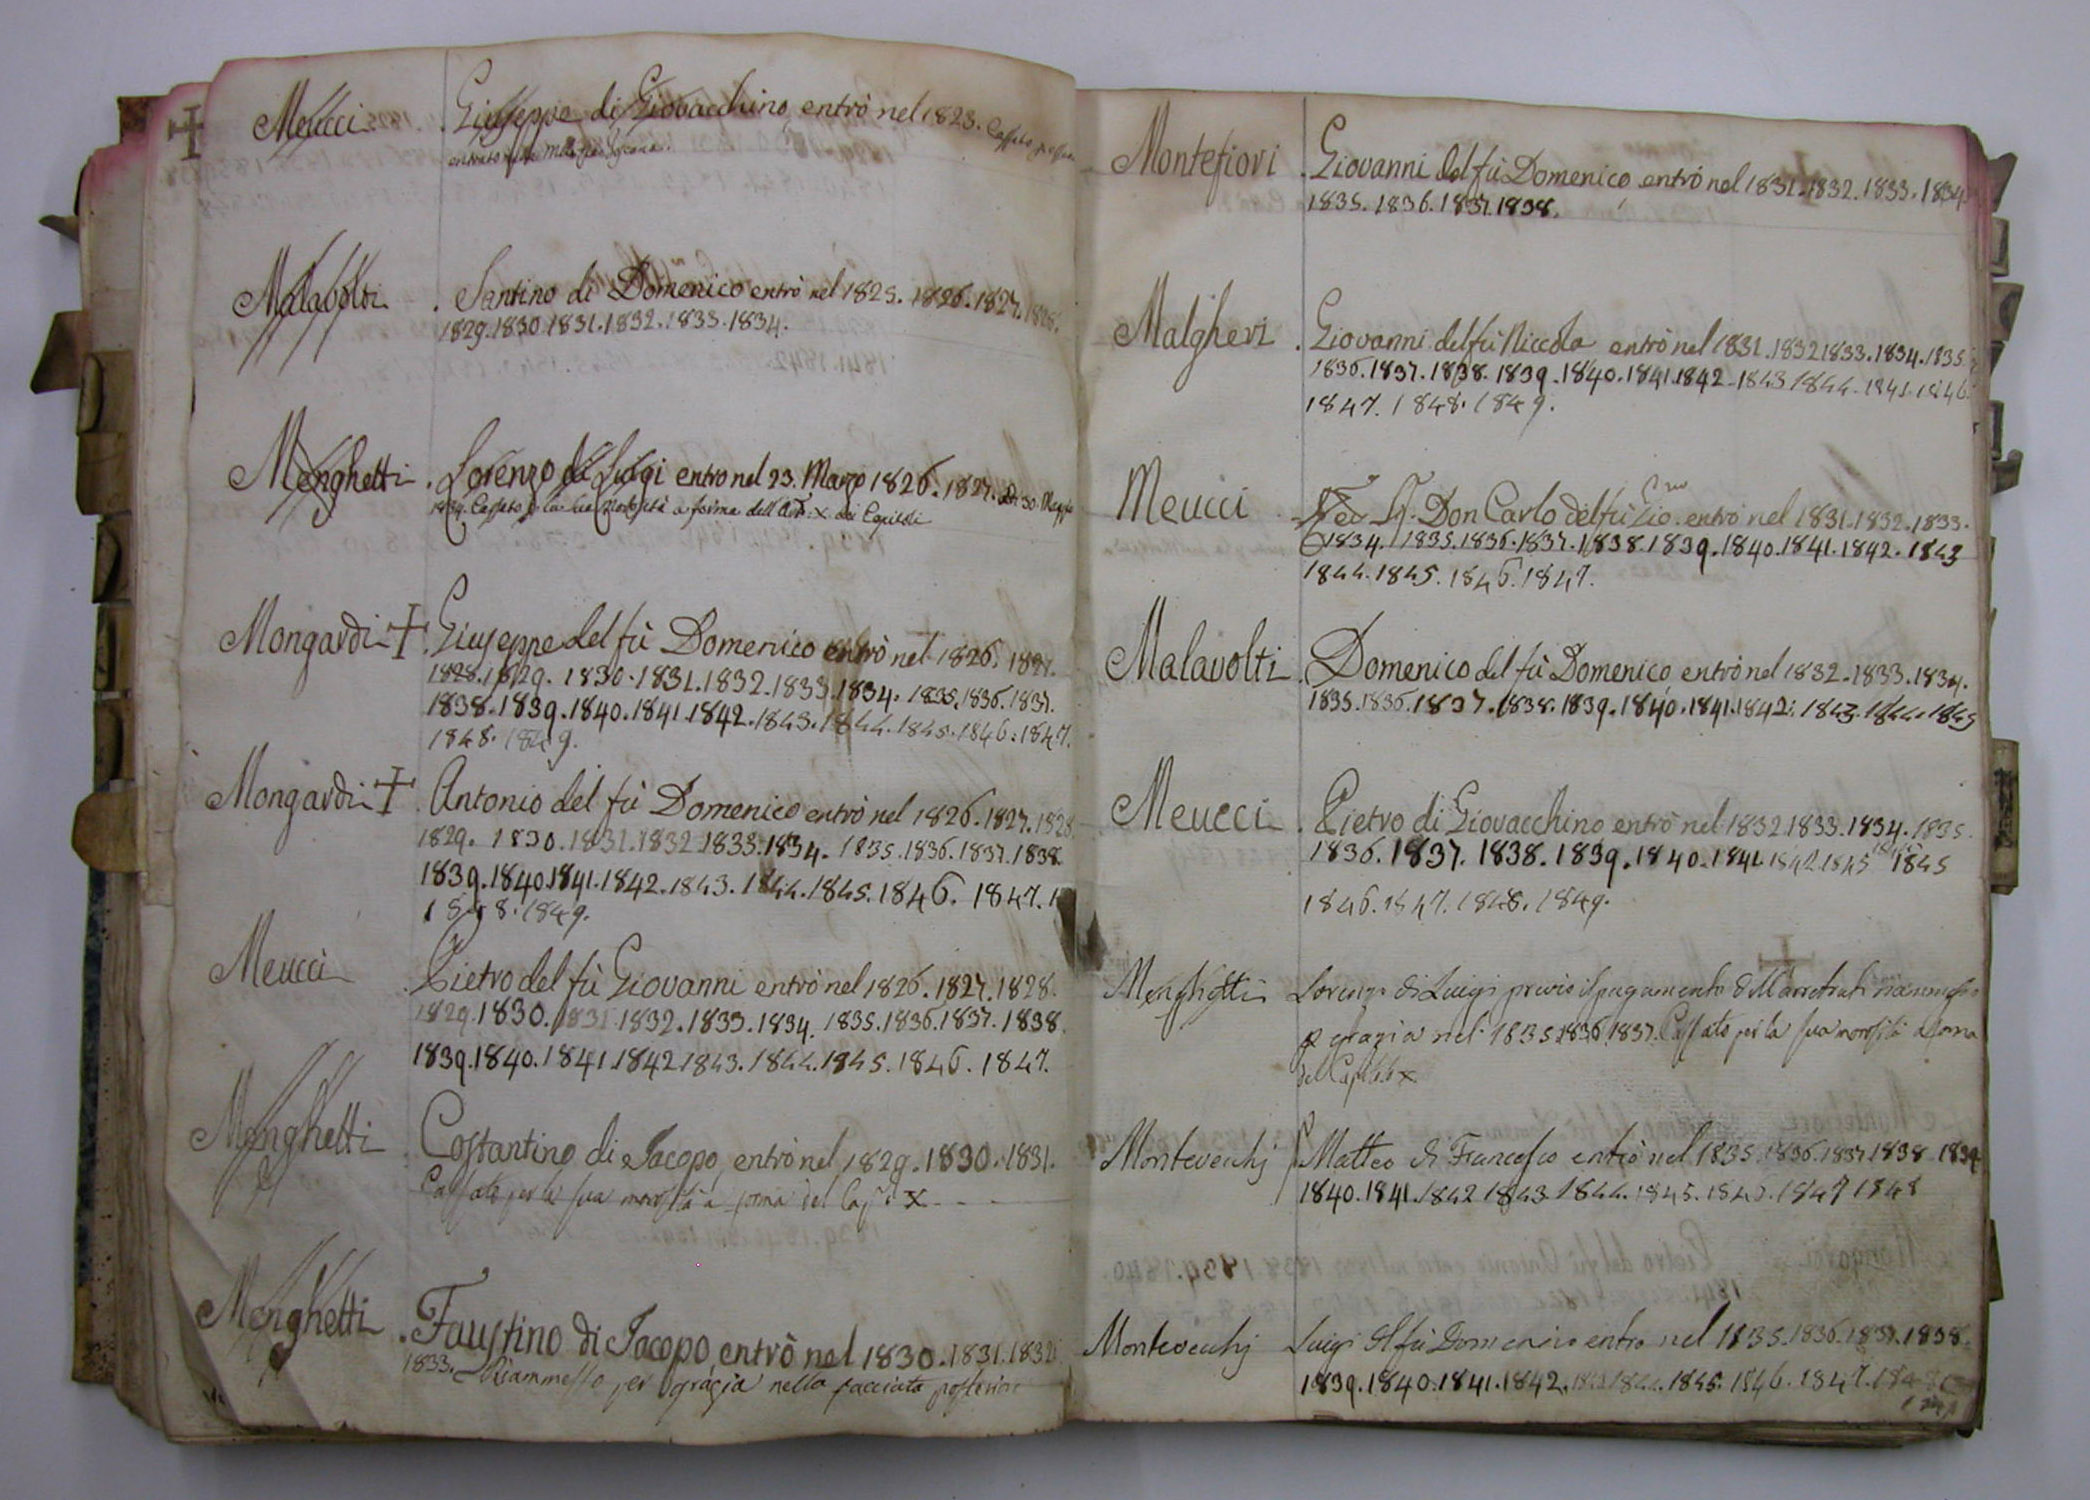 Meucci . Giuseppe di Giovacchino entrò nel 1823. Cassato
entrato
Malavolti . Santino di Domenico entrò nel 1825. 1826. 1827. 1828.
1829. 1830. 1831. 1832. 1833. 1834.
Menghetti . Lorenzo di Luigi entro nel 23. Marzo 1826. 1827. 30. Maggio
Cassato p la sua morosità a forma dell Art: X dei Capitoli
Mongardi + Giuseppe del fù Domenico entrò nel 1826. 1827.
1828. 1829. 1830. 1831. 1832. 1833. 1834. 1835. 1836. 1837.
1838. 1839. 1840. 1841. 1842. 1843. 1844. 1845. 1846. 1847.
1848. 1849.
Mongardi + Antonio del fù Domenico entrò nel 1826. 1827. 1828.
1829. 1830. 1831. 1832. 1833. 1834. 1835. 1836. 1837. 1838.
1839. 1840. 1841. 1842. 1843. 1844. 1845. 1846. 1847. 1
1848. 1849.
Meucci . Pietro del fù Giovanni entrò nel 1826. 1827. 1828.
1829. 1830. 1831. 1832. 1833. 1834. 1835. 1836. 1837. 1838.
1839. 1840. 1841. 1842. 1843. 1844. 1845. 1846. 1847.
Menghetti . Costantino di Jacopo, entrò nel 1829. 1830. 1831.
Cassato per la sua morosità a forma del Cap: X
Menghetti . Faustino di Jacopo, entrò nel 1830. 1831. 1832.
1833. Riammesso per grazia nella facciata posteriore
Montefiori . Giovanni del fù Domenico entrò nel 1831. 1832. 1833. 1834
1835. 1836. 1837. 1838.
Malgheri . Giovanni del fù Niccola entrò nel 1831. 1832 1833. 1834. 1835.
1836. 1837. 1838. 1839. 1840. 1841. 1842. 1843 1844. 1845. 1846.
1847. 1848. 1849.
Meucci . Don Carlo del fù Pio entrò nel 1831. 1832. 1833.
1834. 1835. 1836. 1837. 1838. 1839. 1840. 1841. 1842. 1843
1844. 1845. 1846. 1847.
Malavolti . Domenico del fù Domenico entrò nel 1832. 1833. 1834.
1835. 1836. 1837. 1838. 1839. 1840. 1841. 1842. 1843. 1844. 1845
Meucci . Pietro di Giovacchino entrò nel 1832 1833. 1834. 1835.
1836. 1837. 1838. 1839. 1840. 1841. 1842. 1843 1844 1845
1846. 1847. 1848. 1849.
Menghetti Lorenzo di Luigi previo il pagamento dell'arretrati riammesso
p grazia nel 1835 1836. 1837. Cassato per la sua morosità a forma
del Capitolo X
Montevecchj Matteo di Francesco entrò nel 1835. 1836. 1837. 1838. 1839
1840. 1841. 1842 1843. 1844. 1845. 1846. 1847 1848
Montevecchj Luigi del fù Domenico entro nel 1835. 1836. 1837. 1838.
1839. 1840. 1841. 1842. 1843. 1844. 1845. 1846. 1847. 1848